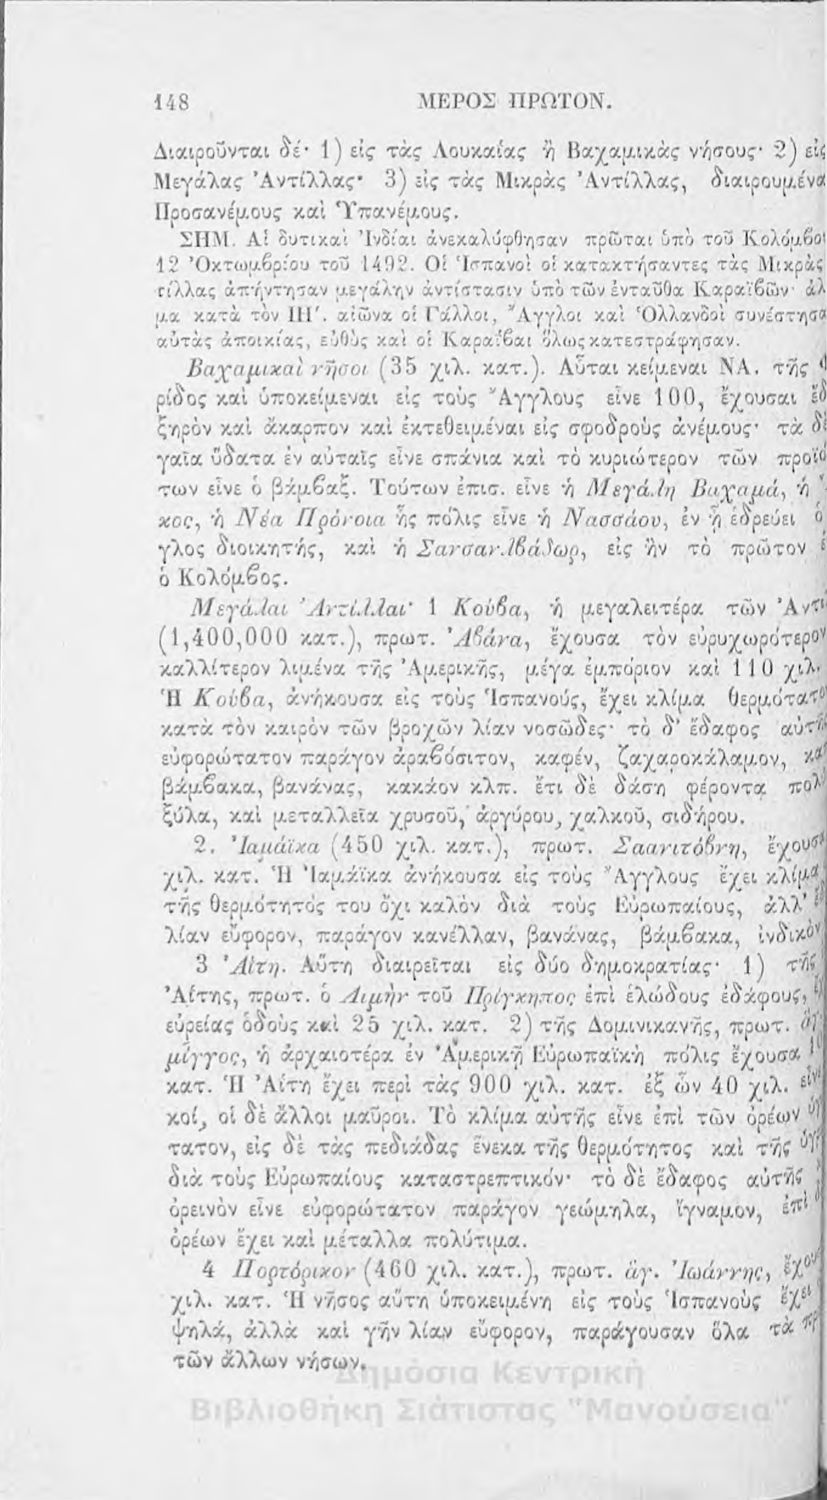 148 ΜΕΡΟΣ ΠΡΩΤΟΝ.
Διαιροῦνται δέ· 1) εἰς τὰς Λουκαίας ἢ Βαχαμικὰς νήσους· 2) εἰς
Μεγάλας Ἀντίλλας· 3) εἰς τὰς Μικρὰς Ἀντίλλας, διαιρουμένα
Προσανέμους καὶ Ὑπανέμους.
ΣΗΜ. Αἱ δυτικαὶ Ἰνδίαι ἀνεκαλύφθησαν πρῶται ὑπὸ τοῦ Κολόμβο
12 Ὀκτωμβρίου τοῦ 1492. Οἱ Ἱσπανοὶ οἱ κατακτήσαντες τὰς Μικρὰς
τίλλας ἀπήντησαν μεγάλην ἀντίστασιν ὑπὸ τῶν ἐνταῦθα Καραϊβῶν· ἀλ
μα κατὰ τὸν ΙΗ'. αἰῶνα οἱ Γάλλοι, Ἄγγλοι καὶ Ὁλλανδοὶ συνέστησα
αὐτὰς ἀποικίας, εὐθὺς καὶ οἱ Καραΐβαι ὅλως κατεστράφησαν.
Βαχαμικαὶ νῆσοι (35 χιλ. κατ.). Αὗται κείμεναι ΝΑ. τῆς
ρίδος καὶ ὑποκείμεναι εἰς τοὺς Ἄγγλους εἶνε 100, ἔχουσαι ἔδ
ξηρὸν καὶ ἄκαρπον καὶ ἐκτεθειμέναι εἰς σφοδροὺς ἀνέμους· τὰ δὲ
γαῖα ὕδατα ἐν αὐταῖς εἶνε σπάνια καὶ τὸ κυριώτερον τῶν προϊό
των εἶνε ὁ βάμβαξ. Τούτων ἐπισ. εἶνε ἡ Μεγάλη Βαχαμά, ἡ
κος, ἡ Νέα Πρόνοια ἧς πόλις εἶνε ἡ Νασσάου, ἐν ᾗ ἑδρεύει ὁ
γλος διοικητής, καὶ ἡ Σανσανλβάδωρ, εἰς ἣν τὸ πρῶτον
ὁ Κολόμβος.
Μεγάλαι Ἀντίλλαι· 1 Κούβα, ἡ μεγαλειτέρα τῶν Ἀντι
(1,400,000 κατ.), πρωτ. Ἀβάνα, ἔχουσα τὸν εὐρυχωρότερον
καλλίτερον λιμένα τῆς Ἀμερικῆς, μέγα ἐμπόριον καὶ 110 χιλ.
Ἡ Κούβα, ἀνήκουσα εἰς τοὺς Ἱσπανούς, ἔχει κλίμα θερμότατον
κατὰ τὸν καιρὸν τῶν βροχῶν λίαν νοσῶδες· τὸ δ' ἔδαφος αὐτῆς
εὐφορώτατον παράγον ἀραβόσιτον, καφέν, ζαχαροκάλαμον, κα
βάμβακα, βανάνας, κακάον κλπ. ἔτι δὲ δάση φέροντα πολ
ξύλα, καὶ μεταλλεῖα χρυσοῦ, ἀργύρου, χαλκοῦ, σιδήρου.
2. Ἰαμάϊκα (450 χιλ. κατ.), πρωτ. Σαανιτόβνη, ἔχουσα
χιλ. κατ. Ἡ Ἰαμάϊκα ἀνήκουσα εἰς τοὺς Ἄγγλους ἔχει κλίμα
τῆς θερμότητός του ὄχι καλὸν διὰ τοὺς Εὐρωπαίους, ἀλλ'
λίαν εὔφορον, παράγον κανέλλαν, βανάνας, βάμβακα, ἰνδικὸν
3 Ἀΐτη. Αὕτη διαιρεῖται εἰς δύο δημοκρατίας· 1) τῆς
Ἀΐτης, πρωτ. ὁ Λιμὴν τοῦ Πρίγκηπος ἐπὶ ἑλώδους ἐδάφους,
εὐρείας ὁδοὺς καὶ 25 χιλ. κατ. 2) τῆς Δομινικανῆς, πρωτ.
μίγγος, ἡ ἀρχαιοτέρα ἐν Ἀμερικῇ Εὐρωπαϊκὴ πόλις ἔχουσα
κατ. Ἡ Ἀΐτη ἔχει περὶ τὰς 900 χιλ. κατ. ἐξ ὧν 40 χιλ.
κοί, οἱ δὲ ἄλλοι μαῦροι. Τὸ κλίμα αὐτῆς εἶνε ἐπὶ τῶν ὀρέων
τατον, εἰς δὲ τὰς πεδιάδας ἕνεκα τῆς θερμότητος καὶ τῆς
διὰ τοὺς Εὐρωπαίους καταστρεπτικόν· τὸ δὲ ἔδαφος αὐτῆς
ὀρεινὸν εἶνε εὐφορώτατον παράγον γεώμηλα, ἴγναμον, ἐπὶ
ὀρέων ἔχει καὶ μέταλλα πολύτιμα.
4 Πορτόρικον (460 χιλ. κατ.), πρωτ. ἅγ. Ἰωάννης,
χιλ. κατ. Ἡ νῆσος αὕτη ὑποκειμένη εἰς τοὺς Ἱσπανοὺς ἔχει
ψηλά, ἀλλὰ καὶ γῆν λίαν εὔφορον, παράγουσαν ὅλα τὰ
τῶν ἄλλων νήσων.
Δημόσια Κεντρική
Βιβλιοθήκη Σιάτιστας "Μανούσεια"